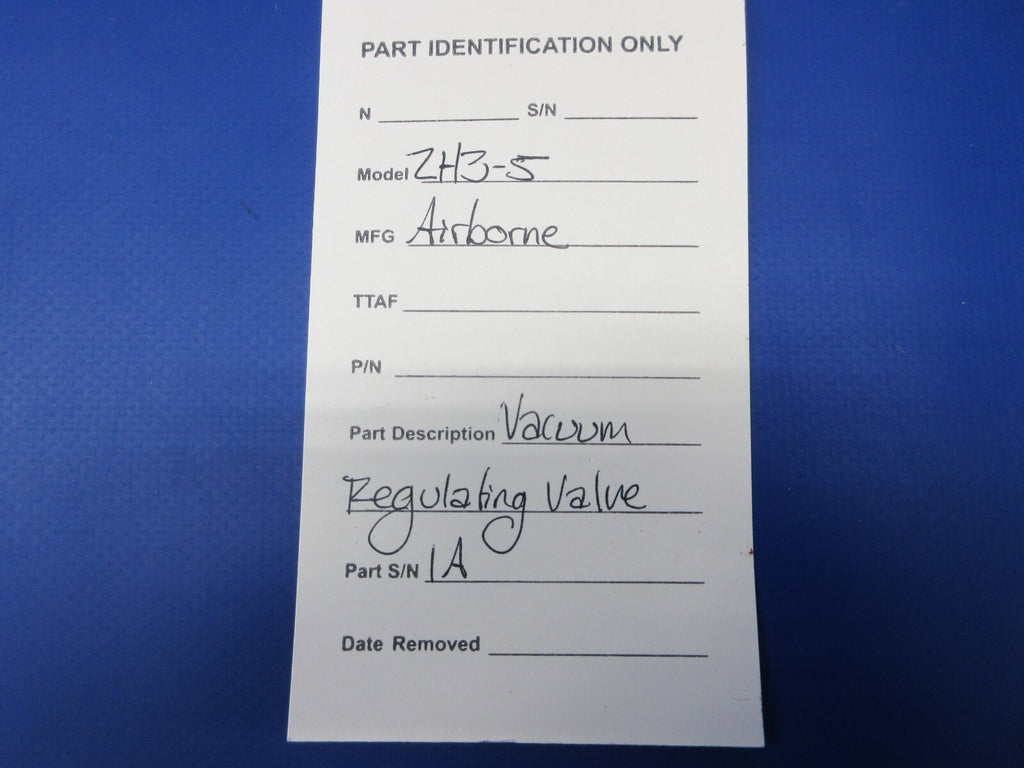 PART IDENTIFICATION ONLY
N S/N
Model 2H3-5
MFG Airborne
TTAF
P/N
Part Description Vacuum
Regulating Valve
Part S/N 1A
Date Removed